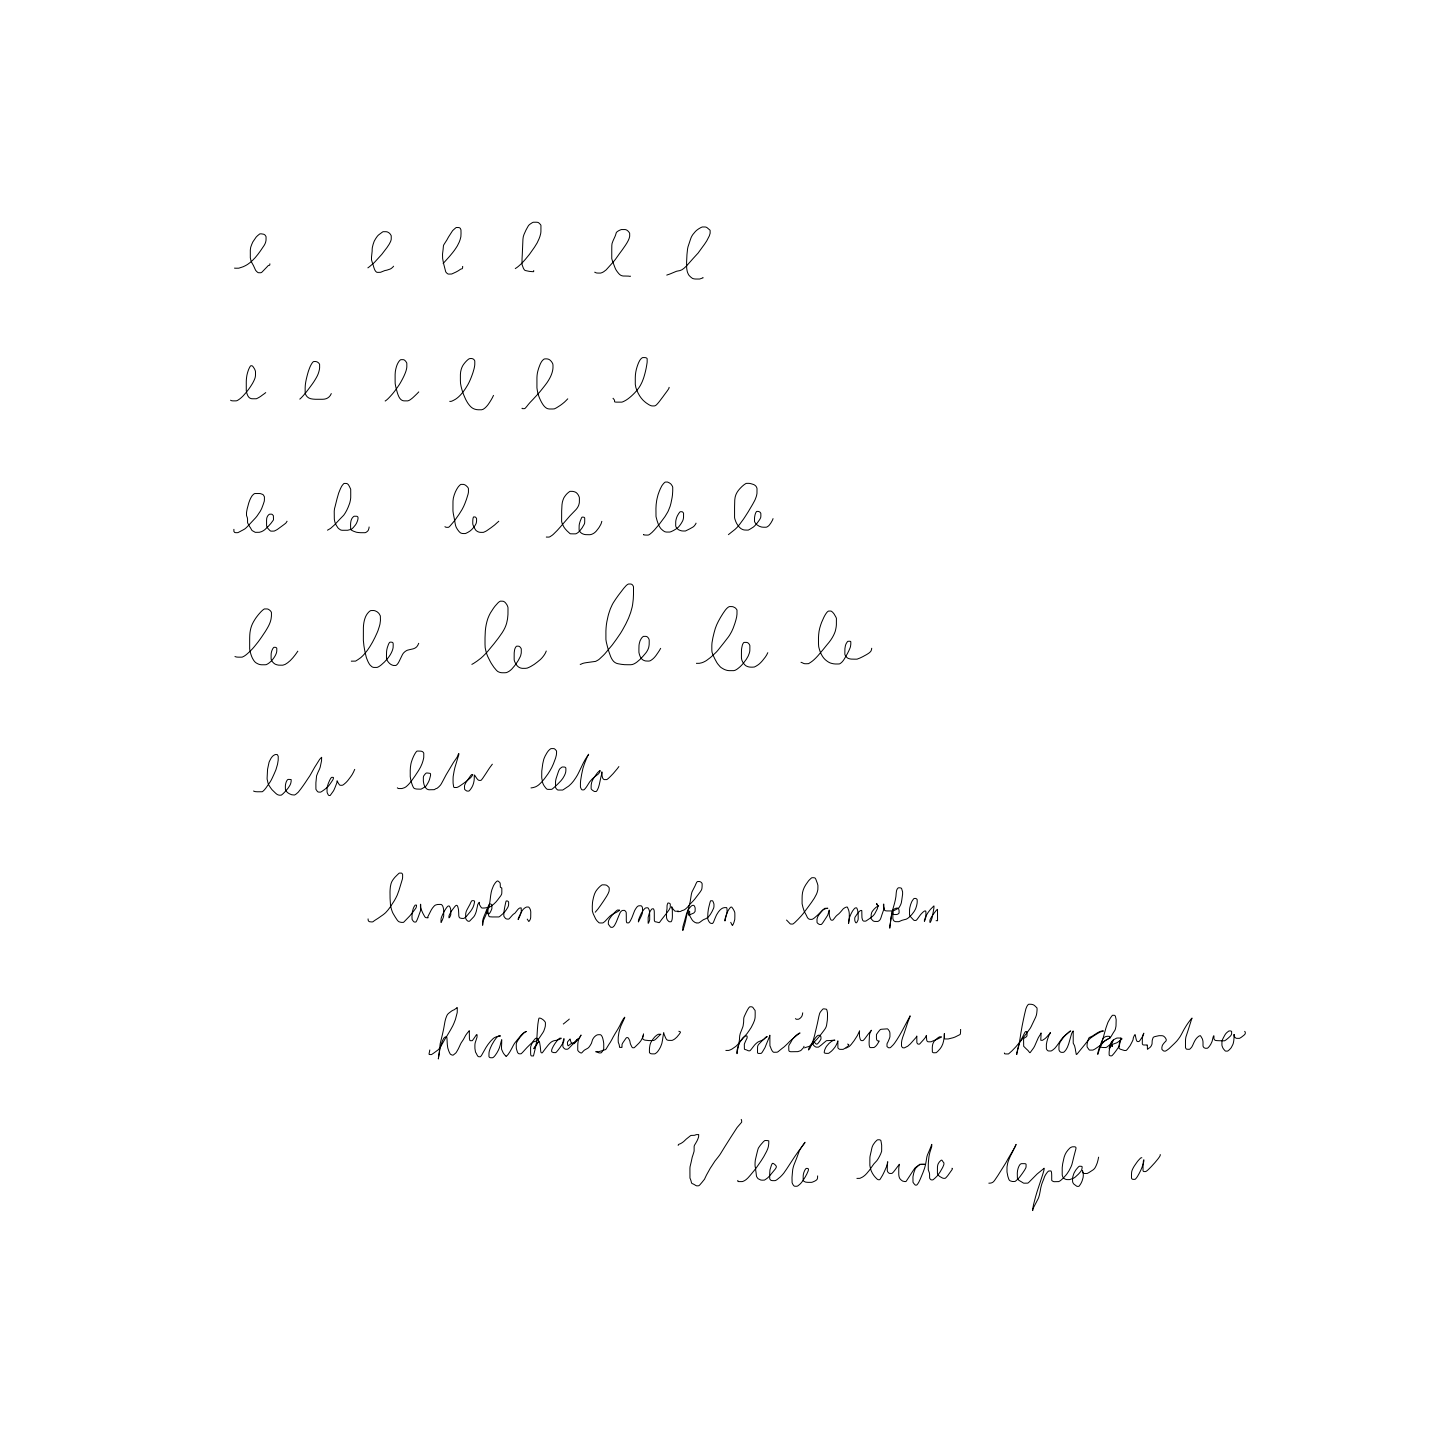 l l l l l l
l l l l l l
le le le le le le
le le le le le le
leto leto leto
lamoken lamoken lamokem
hrackárstvo hačkarstvo hrackarstvo
V lete bude teplo a